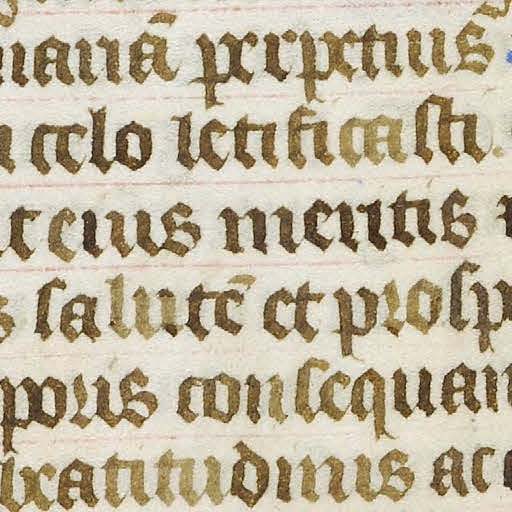 perpetuis
celo letificasti.
eius meritis
salutē et prosp
poris consequan
eatitudinis ac